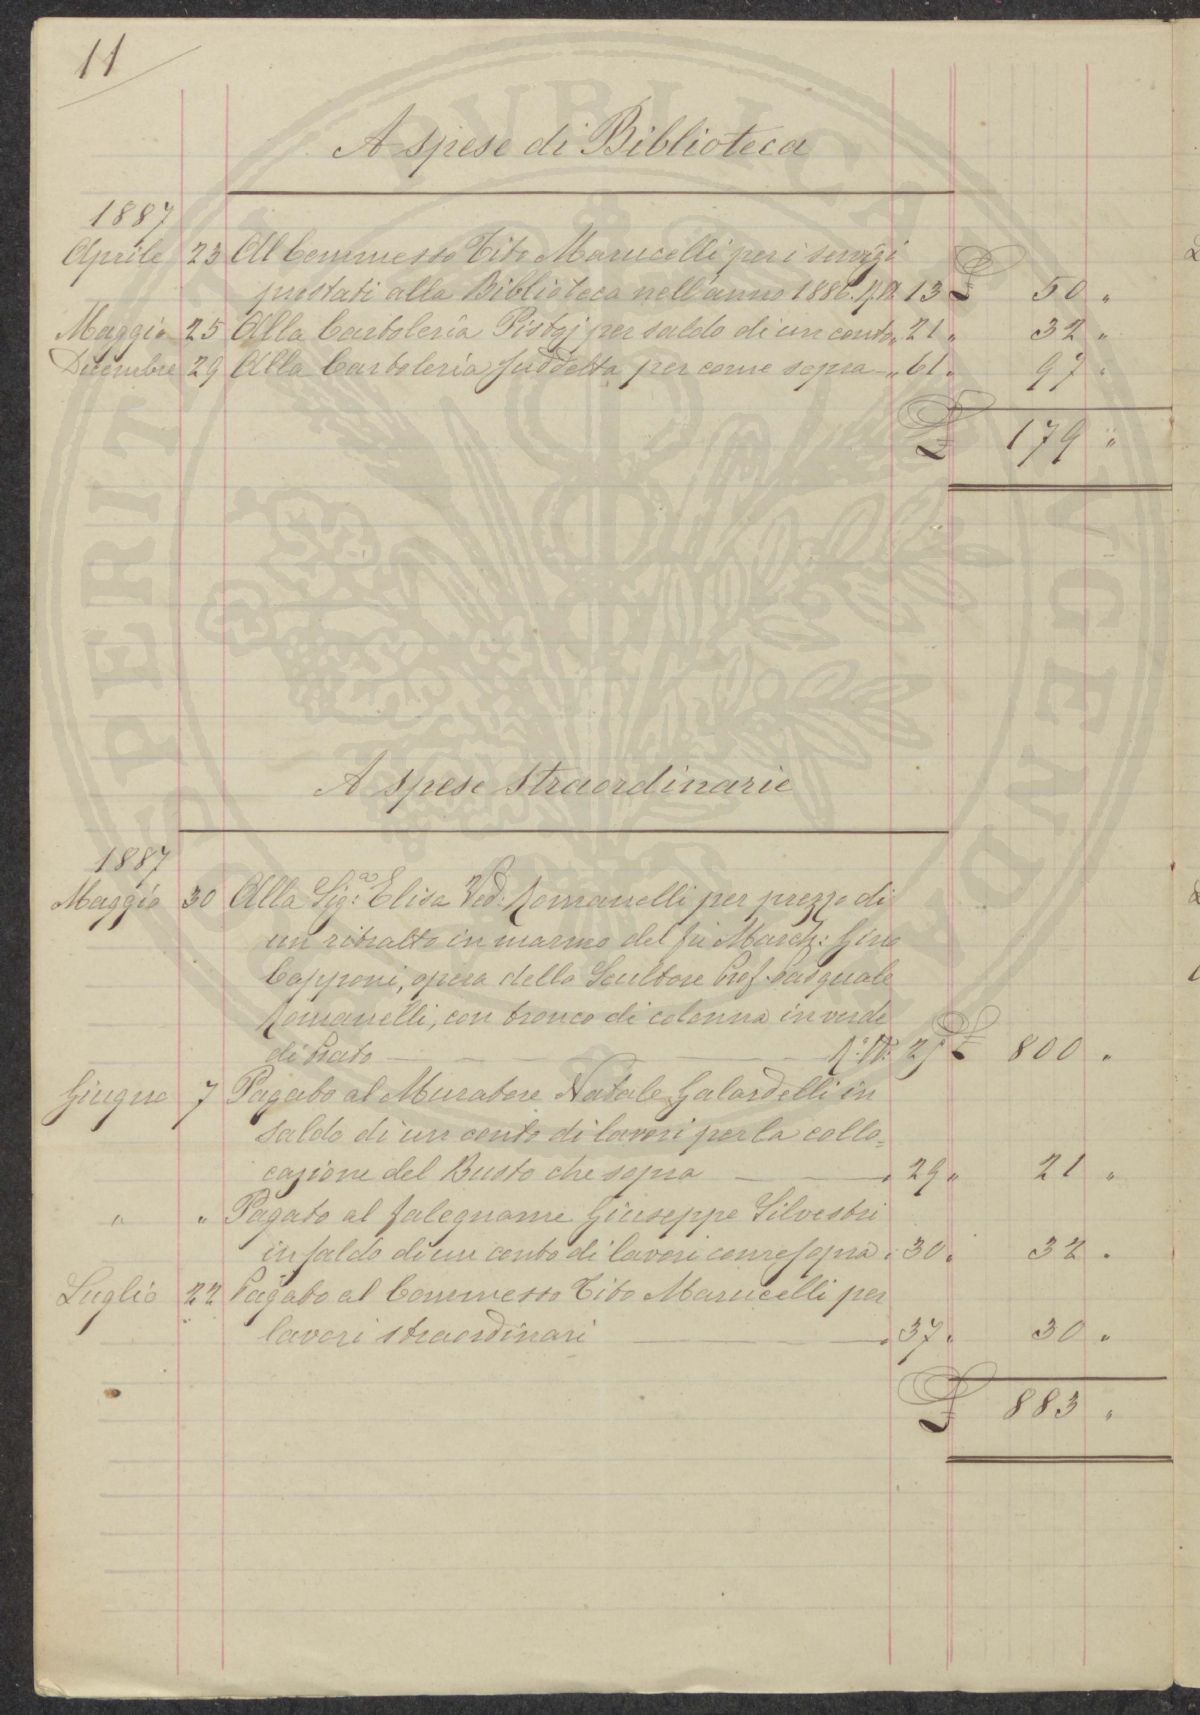 11
A spese di Biblioteca
1887
Aprile 23 Al Commesso Tito Marucelli per i servigi
prestati alla Biblioteca nell'anno 1886. 13 £ 50 "
Maggio 25 Alla Cartoleria Pistoj per saldo di un conto " 21 " 32 "
Dicembre 29 Alla Cartoleria suddetta per come sopra — " 61 " 97 "
£ 179 "
A spese straordinarie
1887
Maggio 30 Alla Sig:ra Elisa Ved: Romanelli per prezzo di
un ritratto in marmo del fu March: Gino
Capponi, opera dello Scultore Prof. Pasquale
Romanelli, con tronco di colonna in verde
di Prato — £ 800 "
Giugno 7 Pagato al Muratore Natale Galardelli in
saldo di un conto di lavori per la collo=
cazione del Busto che sopra — " 29 " 21 "
" " Pagato al falegname Giuseppe Silvestri
in saldo di un conto di lavori come sopra " 30 " 32 "
Luglio 22 Pagato al Commesso Tito Marucelli per
lavori straordinari — " 37 " 30 "
£ 883 "